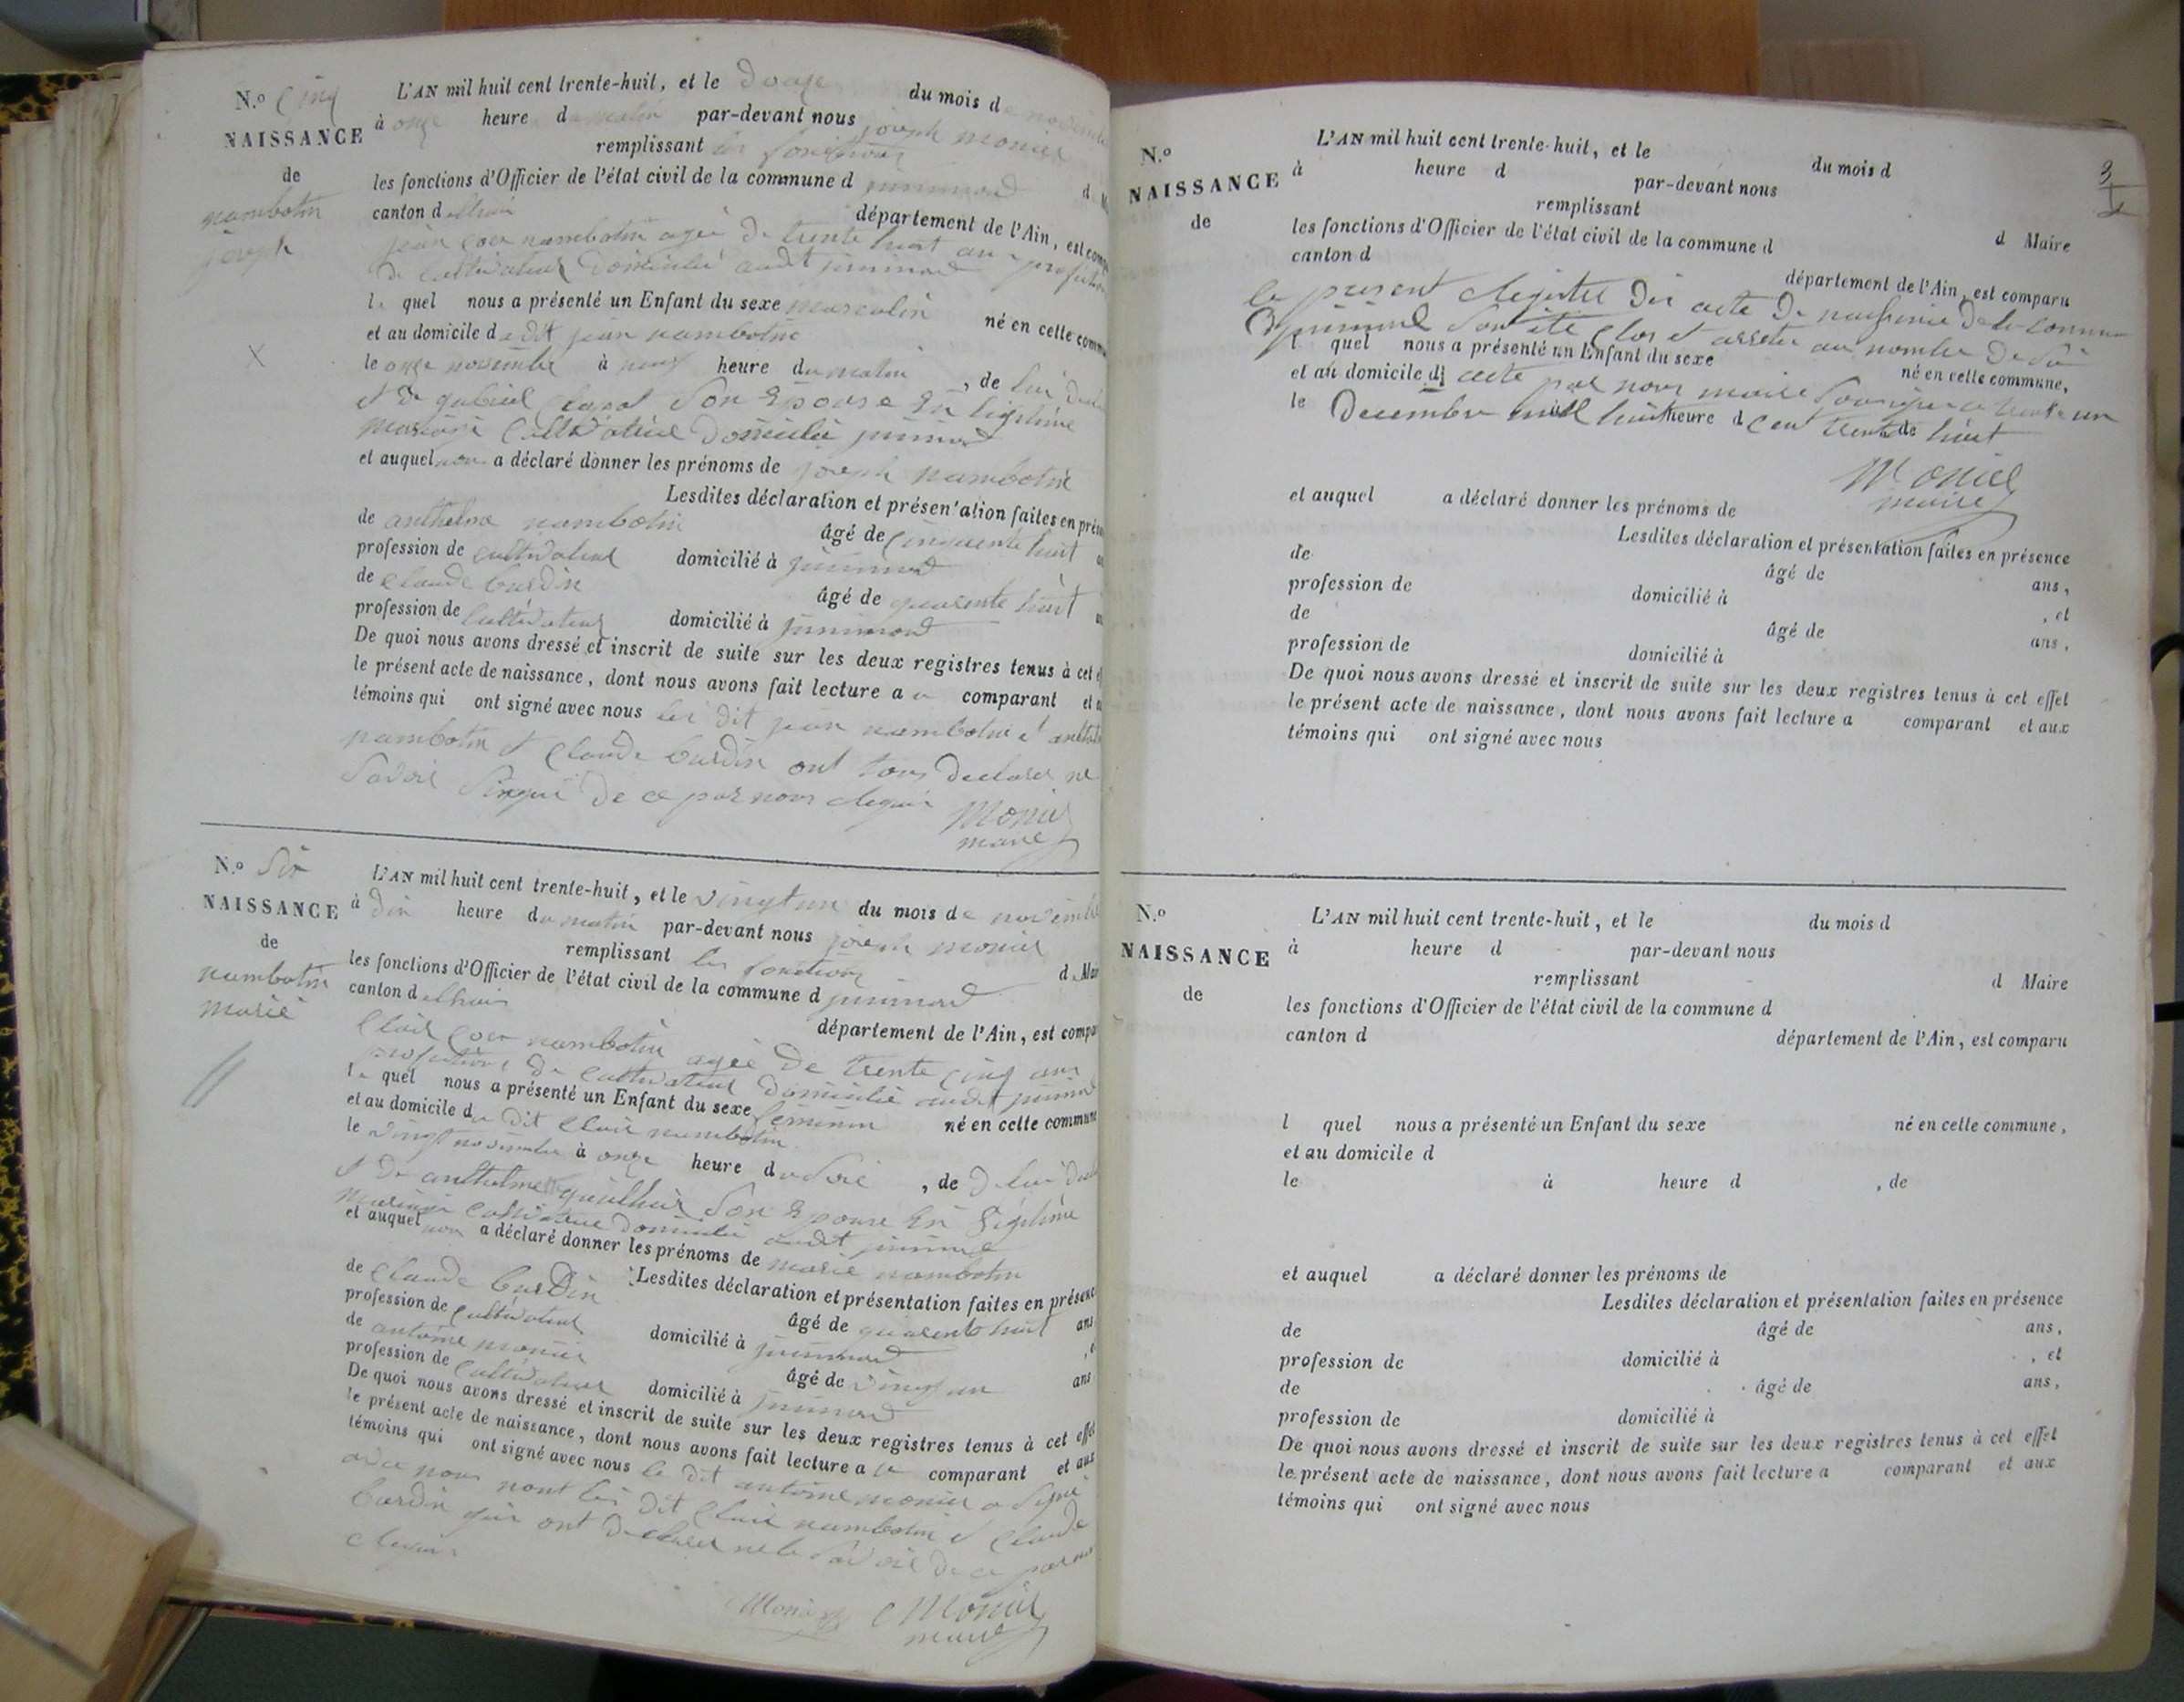 N.o Cinq
NAISSANCE
de
nambotin
joseph
L'AN mil huit cent trente-huit, et le douze du mois de novembre
à onze heure du matin par-devant nous joseph monier
remplissant les fonctions
les fonctions d'Officier de l'état civil de la commune d d
canton d
département de l'Ain, est
jean nambotin agée de trente huit an profession
de cultivateur domicilié audit
le quel nous a présenté un Enfant du sexe masculin né en cette
et au domicile dedit jean nambotin
le onze novembre à neuf heure du matin, de lui
et de gabriel son Epouse En ligitime
mariage domicilié
et auquel nous a déclaré donner les prénoms de joseph nambotin
Lesdites déclaration et présen'ation faites en
de anthelme nambotin âgé de cinquente huit
profession de cultivateur domicilié à
de claude burdin âgé de quarente huit
profession de cultivateur domicilié à
De quoi nous avons dressé et inscrit de suite sur les deux registres tenus à cet
le présent acte de naissance, dont nous avons fait lecture a comparant et
témoins qui ont signé avec nous les dit jean nambotin et
nambotin et claude burdin ont tous declarer ne
savoir de ce par nous
Monier
maire
N.o Six
NAISSANCE
de
nambotin
marie
L'AN mil huit cent trente-huit, et le vingt un du mois de novembre
à dix heure du matin par-devant nous joseph monier
remplissant les fonctions
les fonctions d'Officier de l'état civil de la commune d d
canton d
département de l'Ain, est
Clair nambotin agée De trente cinq ans
profession De cultivateur domicilié audit
le quel nous a présenté un Enfant du sexe féminin né en cette commune
et au domicile du dit Clair nambotin
le vingt novembre à onze heure du soir, de
et De anthelme son Epouse En ligitime
domicilié audit
et auquel nous a déclaré donner les prénoms de marie nambotin
Lesdites déclaration et présentation faites en
de Claude burdin âgé de quarente huit ans
profession de cultivateur domicilié à
de antoine monier âgé de vingt un ans
profession de cultivateur domicilié à
De quoi nous avons dressé et inscrit de suite sur les deux registres tenus à cet effet
le présent acte de naissance, dont nous avons fait lecture a comparant et aux
témoins qui ont signé avec nous le dit antoine monier a signé
avec nous nont les dit Clair nambotin et Claude
burdin qui ont declarer ne le savoir de ce par
Monier Monier
maire
3
N.o
NAISSANCE
de
L'AN mil huit cent trente-huit, et le du mois d
à heure d par-devant nous
remplissant d Maire
les fonctions d'Officier de l'état civil de la commune d
canton d
département de l'Ain, est comparu
le present Registre des acte De naissance De la commune
ont été clos et arreter au nombre De six
l quel nous a présenté un Enfant du sexe né en cette commune,
et au domicile d acte par nous maire trente un
le Decembre mil huit heure d cent trente de huit
Monier
maire
et auquel a déclaré donner les prénoms de
Lesdites déclaration et présentation faites en présence
de âgé de ans,
profession de domicilié à , et
de âgé de ans,
profession de domicilié à
De quoi nous avons dressé et inscrit de suite sur les deux registres tenus à cet effet
le présent acte de naissance, dont nous avons fait lecture a comparant et aux
témoins qui ont signé avec nous
N.o
NAISSANCE
de
L'AN mil huit cent trente-huit, et le du mois d
à heure d par-devant nous
remplissant d Maire
les fonctions d'Officier de l'état civil de la commune d
canton d département de l'Ain, est comparu
l quel nous a présenté un Enfant du sexe né en cette commune,
et au domicile d
le à heure d , de
et auquel a déclaré donner les prénoms de
Lesdites déclaration et présentation faites en présence
de âgé de ans,
profession de domicilié à , et
de âgé de ans,
profession de domicilié à
De quoi nous avons dressé et inscrit de suite sur les deux registres tenus à cet effet
le présent acte de naissance, dont nous avons fait lecture a comparant et aux
témoins qui ont signé avec nous